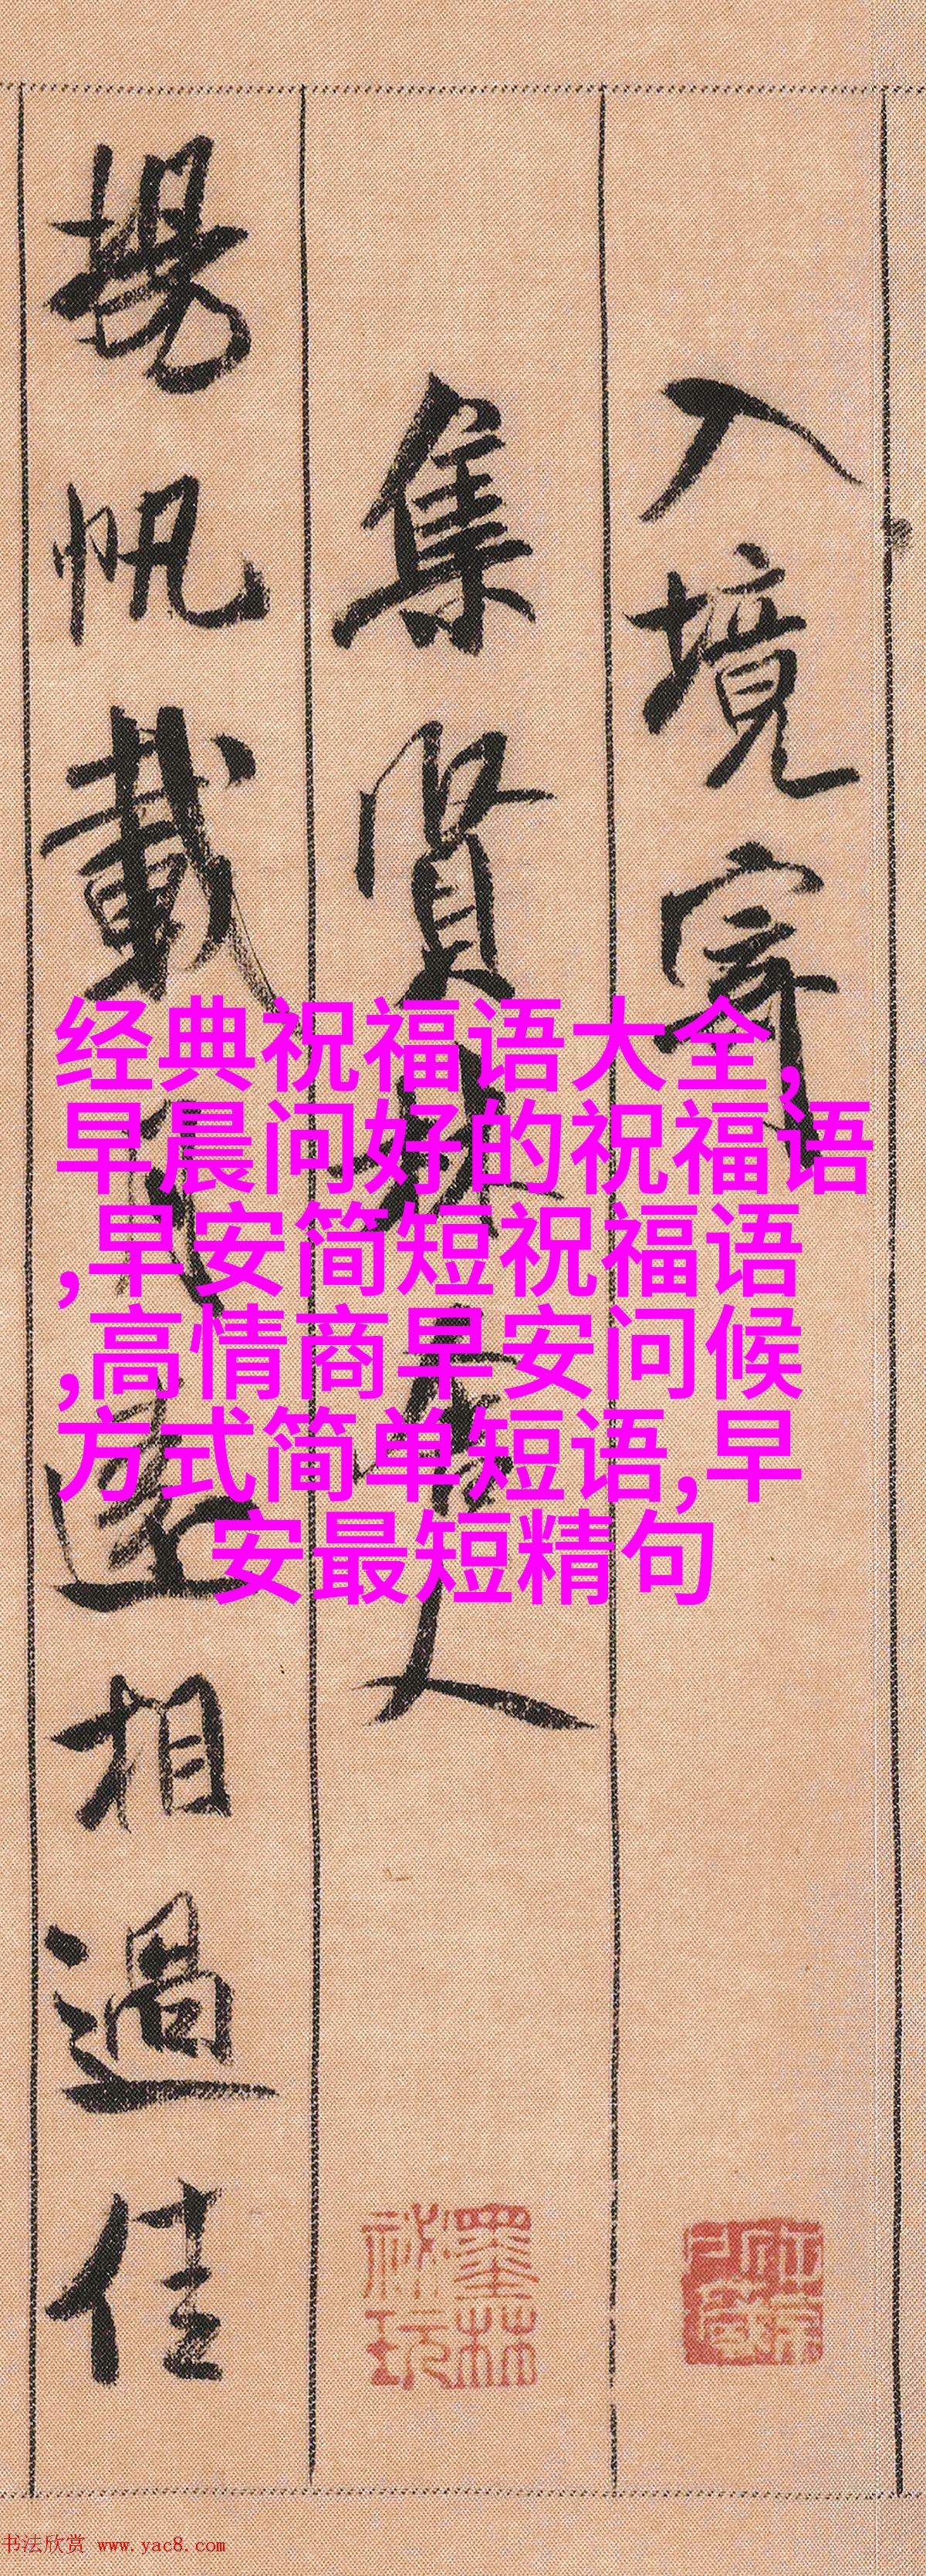 入境寄
集賢林舍人
揚帆載月遠相過佳
经典祝福语大全,
早晨问好的祝福语
,早安简短祝福语
,高情商早安问候
方式简单短语,早
安最短精句
墨林
秘玩
书法欣赏 www.yac8.com